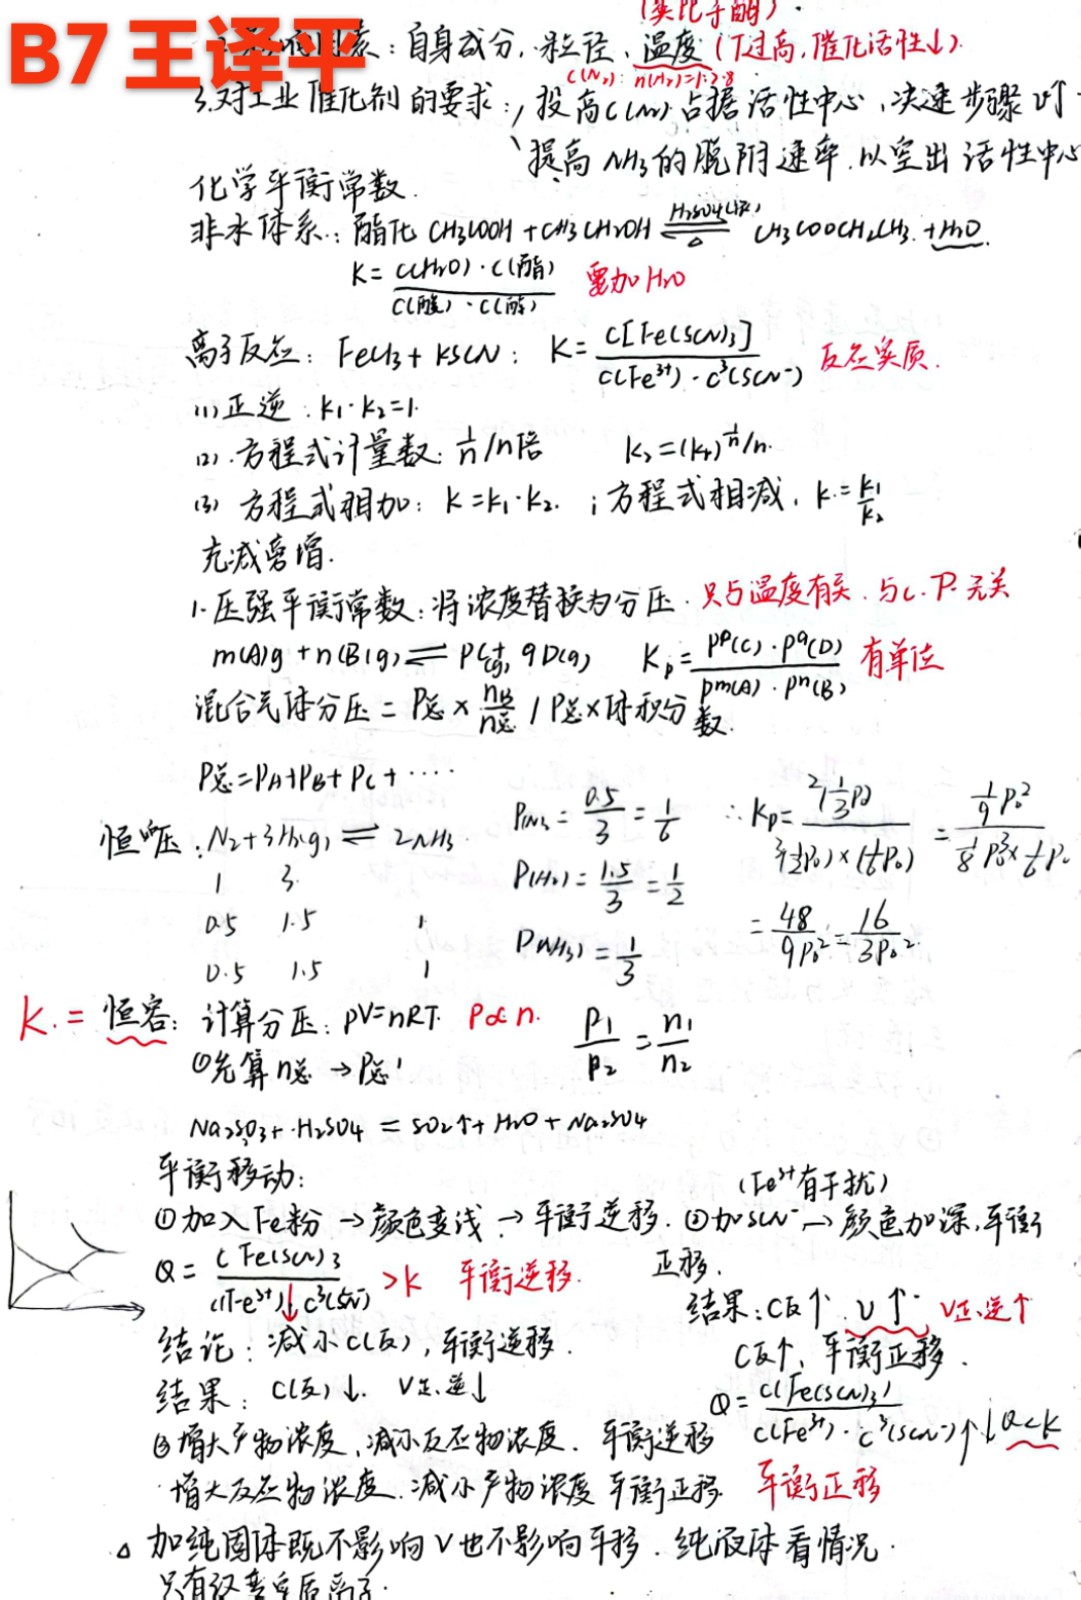 B7 王译平
(类比于酶).
素：自身成分，粒径、温度(T过高，催化活性↓).
C(N₂): n(H₂)=1:2.8
3.对工业催化剂的要求：提高C(N₂)占据活性中心，决速步骤
提高NH₃的脱附速率，以空出活性中心
化学平衡常数.
非水体系：酯化 CH₃COOH + CH₃CH₂OH ⇌ CH₃COOCH₂CH₃ + H₂O.
H₂SO₄(浓) △
K = C(H₂O)·C(酯) / C(酸)·C(醇) 要加H₂O
离子反应：FeCl₃ + KSCN： K = C[Fe(SCN)₃] / C(Fe³⁺)·C³(SCN⁻) 反应实质.
(1) 正逆：K₁·K₂=1.
(2). 方程式计量数：1/n /n倍 K₂=(K₁)^{1/n}/n.
(3) 方程式相加：K=K₁·K₂. ；方程式相减，K=K₁/K₂
1.压强平衡常数：将浓度替换为分压. 只与温度有关. 与c.P.无关
m(A)g + n(B)(g) ⇌ pC(g)+ qD(g) Kp = P^p(C)·P^q(D) / P^m(A)·P^n(B) 有单位
混合气体分压 = P总 × nB/n总 / P总×体积分数.
P总=PA+PB+PC+····
恒压：N₂+3H₂(g) ⇌ 2NH₃. P(N₂) = 0.5/3 = 1/6 ∴Kp = ²(1/3P₀) / ³(1/2P₀)×(1/6P₀) = 1/9P₀² / 1/8P₀³×1/6P₀
1 3 P(H₂) = 1.5/3 = 1/2
0.5 1.5 1 P(NH₃) = 1/3 = 48/9P₀² = 16/3P₀².
0.5 1.5 1
K. = 恒容：计算分压：PV=nRT. P∝n. P₁/P₂ = n₁/n₂
①先算n总 → P总'
Na₂SO₃ + H₂SO₄ = SO₂↑ + H₂O + Na₂SO₄
平衡移动：(Fe³⁺有干扰)
①加入Fe粉 → 颜色变浅 → 平衡逆移. ②加SCN⁻ → 颜色加深，平衡
正移.
Q = C Fe(SCN)₃ / C(Fe³⁺)↓ C³(SCN⁻) >K 平衡逆移.
结果：C反↑. V↑. V正、逆↑
结论：减小C(反)，平衡逆移. C反↑，平衡正移.
结果：C(反)↓. V正、逆↓ Q = C(Fe(SCN)₃) / C(Fe³⁺)·C³(SCN⁻)↑ ↓ Q<K
③增大产物浓度，减小反应物浓度. 平衡逆移
增大反应物浓度. 减小产物浓度 平衡正移. 平衡正移
△ 加纯固体既不影响V也不影响平移. 纯液体看情况.
只有